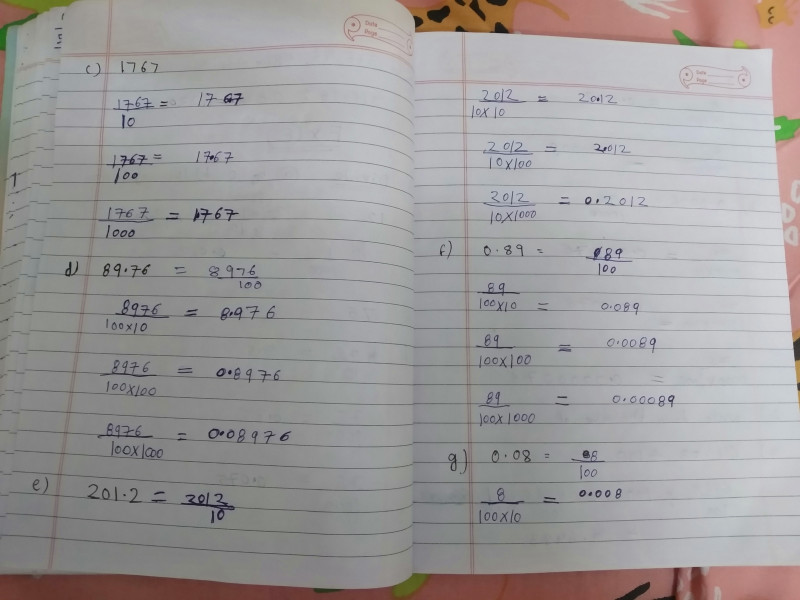 Date
Page
c) 1767
1767/10 = 1767
1767/100 = 17.67
1767/1000 = 1.767
d) 89.76 = 8976/100
8976/100x10 = 8.976
8976/100x100 = 0.8976
8976/100x1000 = 0.08976
e) 201.2 = 2012/10
Date
Page
2012/10x10 = 20.12
2012/10x100 = 2.012
2012/10x1000 = 0.2012
f) 0.89 = 89/100
89/100x10 = 0.089
89/100x100 = 0.0089
=
89/100x1000 = 0.00089
g.) 0.08 = 8/100
8/100x10 = 0.008